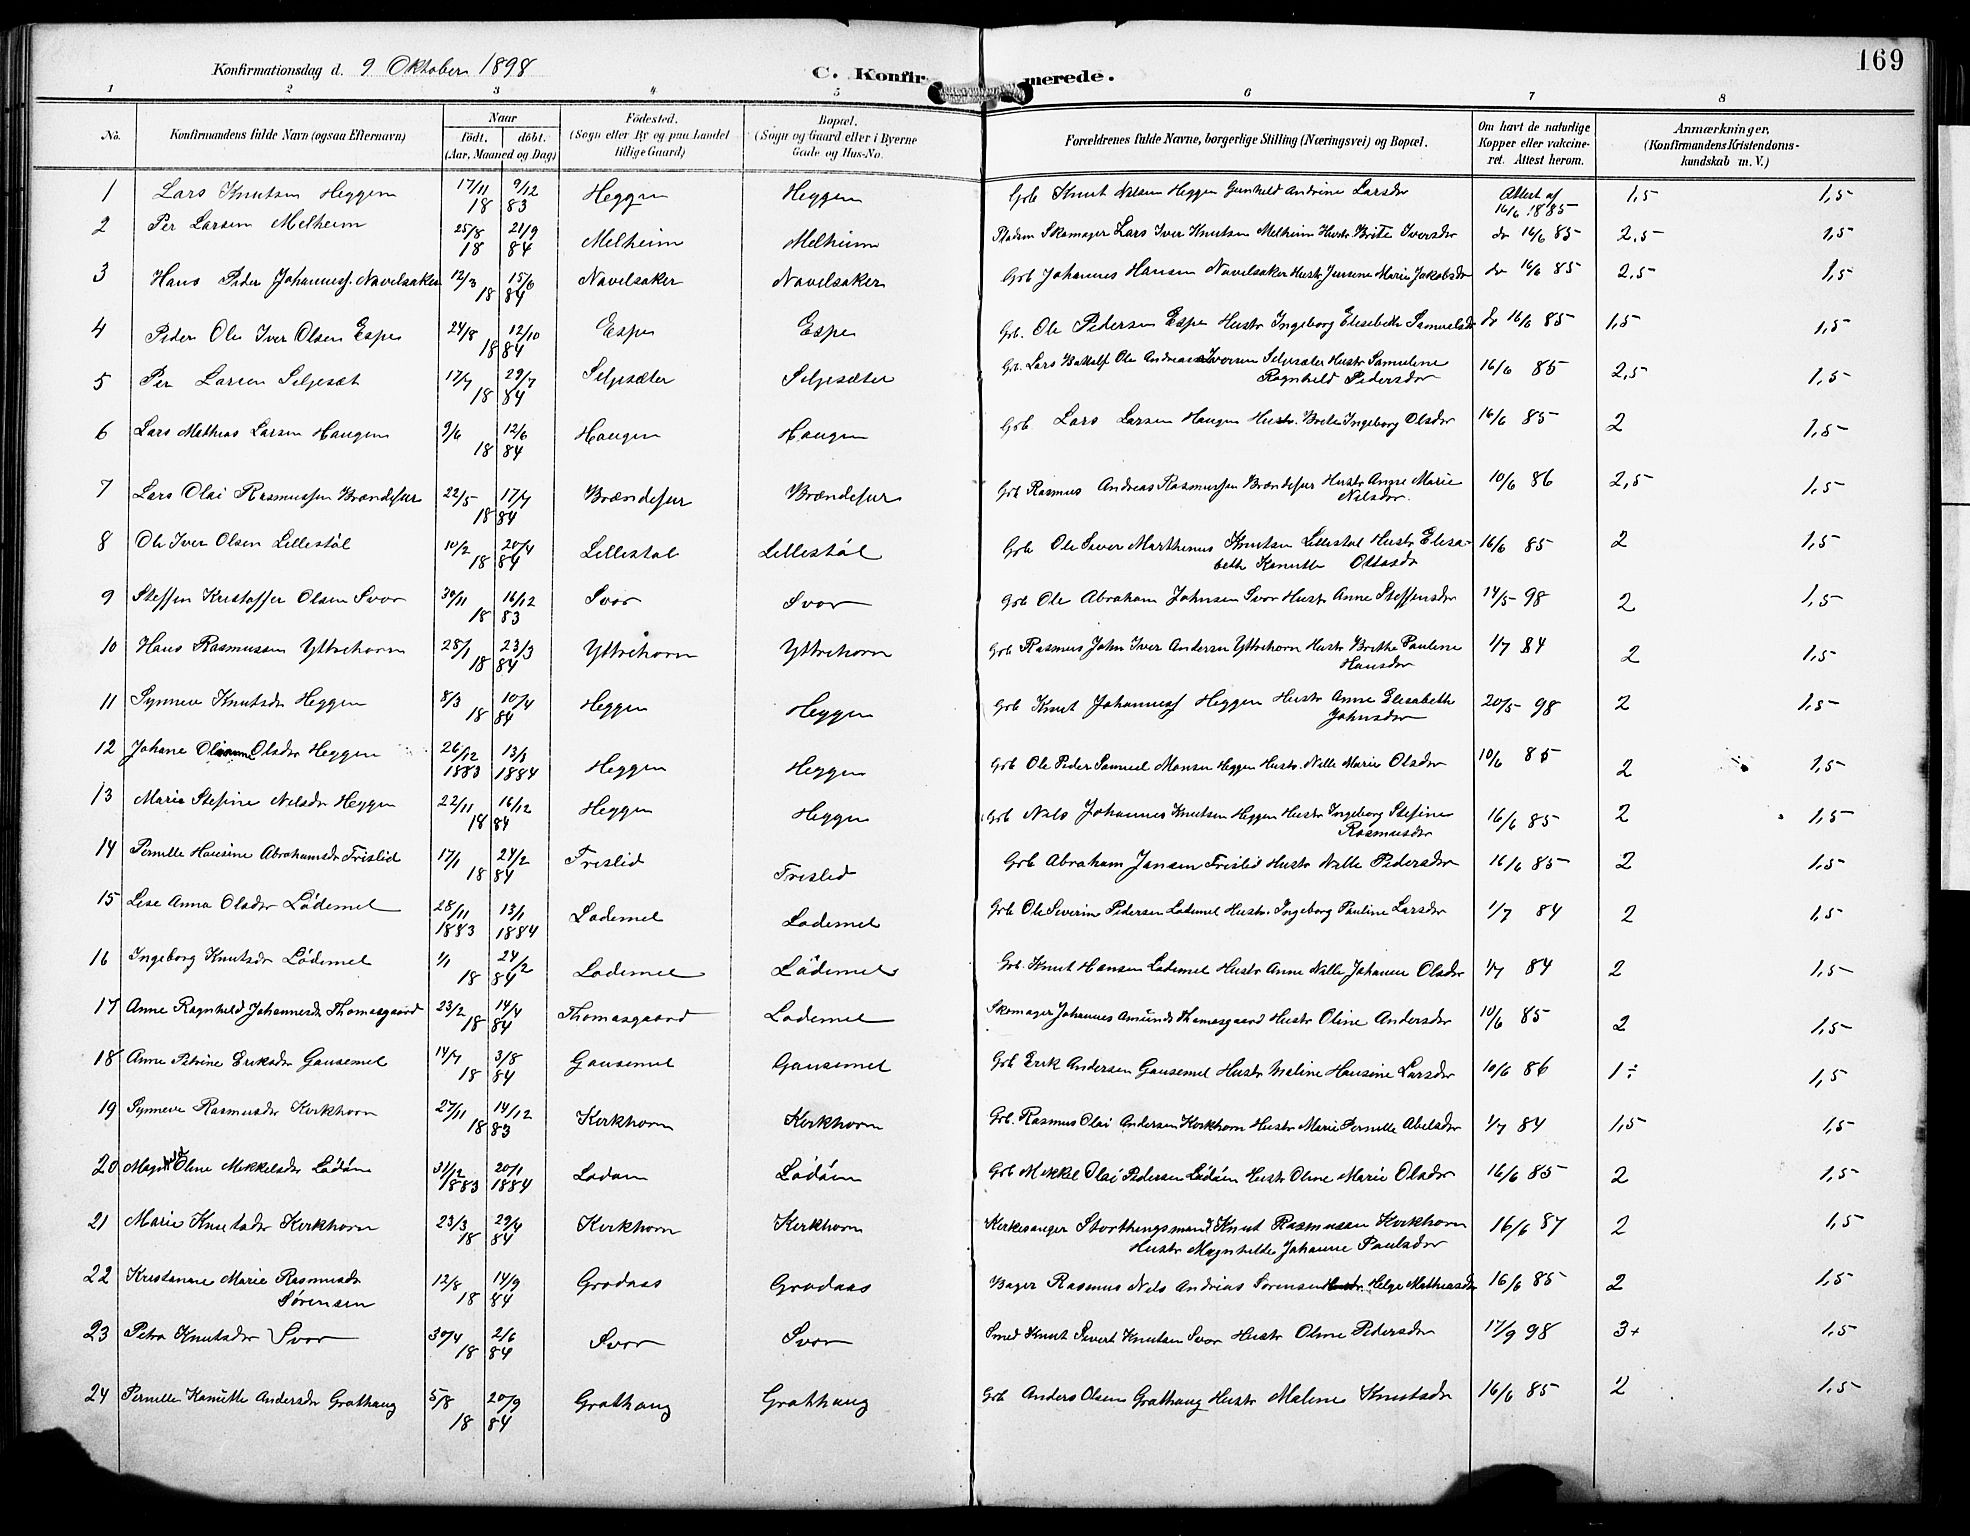 169
Konfirmationsdag d. 9 Oktober 1898
C. Konfirmerede.
1 2 3 4 5 6 7 8
No. Konfirmandens fulde Navn (ogsaa Efternavn) Naar født. døbt. (Aar, Maaned og Dag) Fødested. (Sogn eller By og paa Landet tillige Gaard) Bopæl. (Sogn og Gaard eller i Byerne Gade og Hus-No. Forældrenes fulde Navne, borgerlige Stilling (Næringsvei) og Bopæl. Om havt de naturlige Kopper eller vakcineret. Attest herom. Anmærkninger, (Konfirmandens Kristendomskundskab m. V.)
1 Lars Knutsen Heggen 17/11 9/12 18 83 Heggen Heggen Grb Knut Nilsen Heggen Gunhild Andrine Larsdr Attest af 16/6 1885 1,5 1,5
2 Per Larsen Melheim 25/8 21/9 18 84 Melheim Melheim Pladsm Skomager Lars Iver Knutsen Melheim Hustr. Brite Iversdr do 16/6 85 2,5 1,5
3 Hans Peder Johanness. Navelsaker 12/3 15/6 18 84 Navelsaker Navelsaker Grb Johannes Hansen Navelsaker Hustr Jensine Marie Jakobsdr do 16/6 85 2,5 1,5
4 Peder Ole Iver Olsen Espe 24/8 12/10 18 84 Espe Espe Grb. Ole Pedersen Espe Hustr Ingeborg Elisebeth Samuelsdr do 16/6 85 1,5 1,5
5 Per Larsen Seljeset 17/7 29/7 18 84 Seljesæter Seljesæter Grb. Lars Ole Andreas Iversen Seljesæter Hustr Samueline Ragnhild Pedersdr 16/6 85 2,5 1,5
6 Lars Mathias Larsen Haugen 9/6 12/6 18 84 Haugen Haugen Grb Lars Larsen Haugen Hustr. Brite Ingeborg Olsdr 16/6 85 2 1,5
7 Lars Olai Rasmussen Brændejur 22/5 17/7 18 84 Brændejur Brændejur Grb Rasmus Andreas Rasmussen Brændejur Hustr Anne Marie Nilsdr. 10/6 86 2,5 1,5
8 Ole Iver Olsen Lillestøl 10/2 20/4 18 84 Lillestøl Lillestøl Grb Ole Siver Marthinus Knutsen Lillestøl Hustr Elisabeth Kanutte Ottosdr 16/6 85 2 1,5
9 Steffen Kristoffer Olsen Svor 30/11 16/12 18 83 Svor Svor Grb Ole Abraham Johnsen Svor Hustr Anne Steffensdr 14/5 98 2 1,5
10 Hans Rasmussen Yttrehorn 28/1 23/3 18 84 Yttrehorn Yttrehorn Grb Rasmus John Iver Andersen Yttrehorn Hustr Brithe Pauline Hansdr 1/7 84 2 1,5
11 Synneve Knutsdr Heggen 8/3 10/4 18 84 Heggen Heggen Grb Knut Johanness Heggen Hustr Anne Elisabeth Johnsdr 20/5 98 2 1,5
12 Johane Olianne Olsdr Heggen 26/12 1883 13/1 1884 Heggen Heggen Grb Ole Peder Samuel Monsen Heggen Hustr. Nille Marie Olsdr 10/6 85 2 1,5
13 Marie Stefine Nilsdr Heggen 22/11 16/12 18 84 Heggen Heggen Grb Nils Johannes Knutsen Heggen Hustr Ingeborg Stefine Rasmusdr 16/6 85 2 1,5
14 Pernille Hansine Abrahamsdr Frislid 17/1 24/2 18 84 Frislid Frislid Grb Abraham Jansen Frislid Hustr Nille Pedersdr 16/6 85 2 1,5
15 Lise Anna Olsdr Lødemel 28/11 1883 13/1 1884 Lødemel Lødemel Grb Ole Severin Pedersen Lødemel Hustr. Ingeborg Pauline Larsdr 1/7 84 2 1,5
16 Ingeborg Knutsdr Lødemel 1/1 24/2 18 84 Lødemel Lødemel Grb. Knut Hansen Lødemel Hustr Anne Nille Johanne Olsdr 1/7 84 2 1,5
17 Anne Ragnhild Johannesdr Thomasgaard 23/2 14/4 18 84 Thomasgaard Lødemel Skomager Johannes Amunds Thomasgaard Hustr Oline Andersdr 10/6 85 2 1,5
18 Anne Petrine Eriksdr Gausemel 14/7 3/8 18 84 Gausemel Gausemel Grb Erik Andersen Gausemel Hustr Maline Hansine Larsdr 10/6 86 1÷ 1,5
19 Synneve Rasmusdr Kirkhorn 27/11 14/12 18 83 Kirkhorn Kirkhorn Grb. Rasmus Olai Andersen Kirkhorn Hustr Marie Pernille Abelsdr 1/7 84 1,5 1,5
20 Magnhild Oline Mekkelsdr Lødøen 31/12 1883 20/1 1884 Lødøen Lødøen Grb Mekkel Olai Pedersen Lødøen Hustr Oline Marie Olsdr 16/6 85 2 1,5
21 Marie Knutsdr Kirkhorn 23/3 29/4 18 84 Kirkhorn Kirkhorn Kirkesanger Storthingsmand Knut Rasmussen Kirkhorn Hustr Magnhilde Johanne Paulsdr 16/6 87 2 1,5
22 Kristanne Marie Rasmusdr Sørensen 12/8 14/9 18 84 Grodaas Grodaas Bager Rasmus Nils Andreas Sørensen Hustr. Helge Mathiasdr 16/6 85 2 1,5
23 Petra Knutsdr Svor 30/4 2/6 18 84 Svor Svor Smed Knut Sivert Knutsen Svor Hustr Oline Pedersdr 17/9 98 3+ 1,5
24 Pernille Kanutte Andersdr Grøthaug 5/8 20/9 18 84 Grøthaug Grøthaug Grb Anders Olsen Grøthaug Hustr Maline Knutsdr 16/6 85 2 1,5